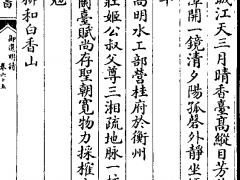 城江天三月晴香臺高縱目芳
潭開一鏡清夕陽孤磬外靜坐
高明水工部營桂府於衡州
莊姬公叔父尊三湘疏地脈一
蘭臺賦尚存聖朝寬物力採榷
柳和白香山
書
御選明詩
卷六十五